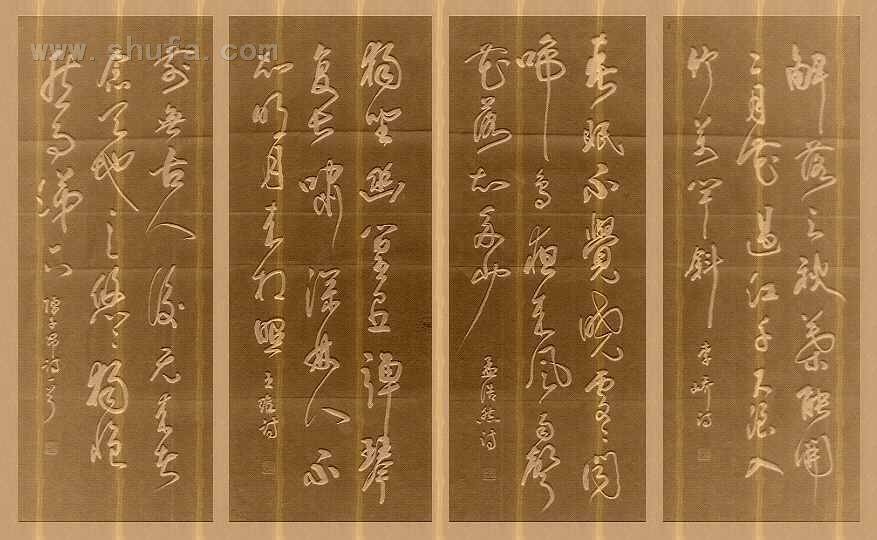 www.shufa.com
解落三秋葉能開
二月花過江千尺浪入
竹萬竿斜
李嶠詩
春眠不覺曉處々聞
啼鳥夜來風雨聲
花落知多少
孟浩然詩
獨坐幽篁里彈琴
復長嘯深林人不
知明月來相照
王維詩
前無古人後無來者
念天地之悠々獨愴
然而涕下
陳子昂詩一首